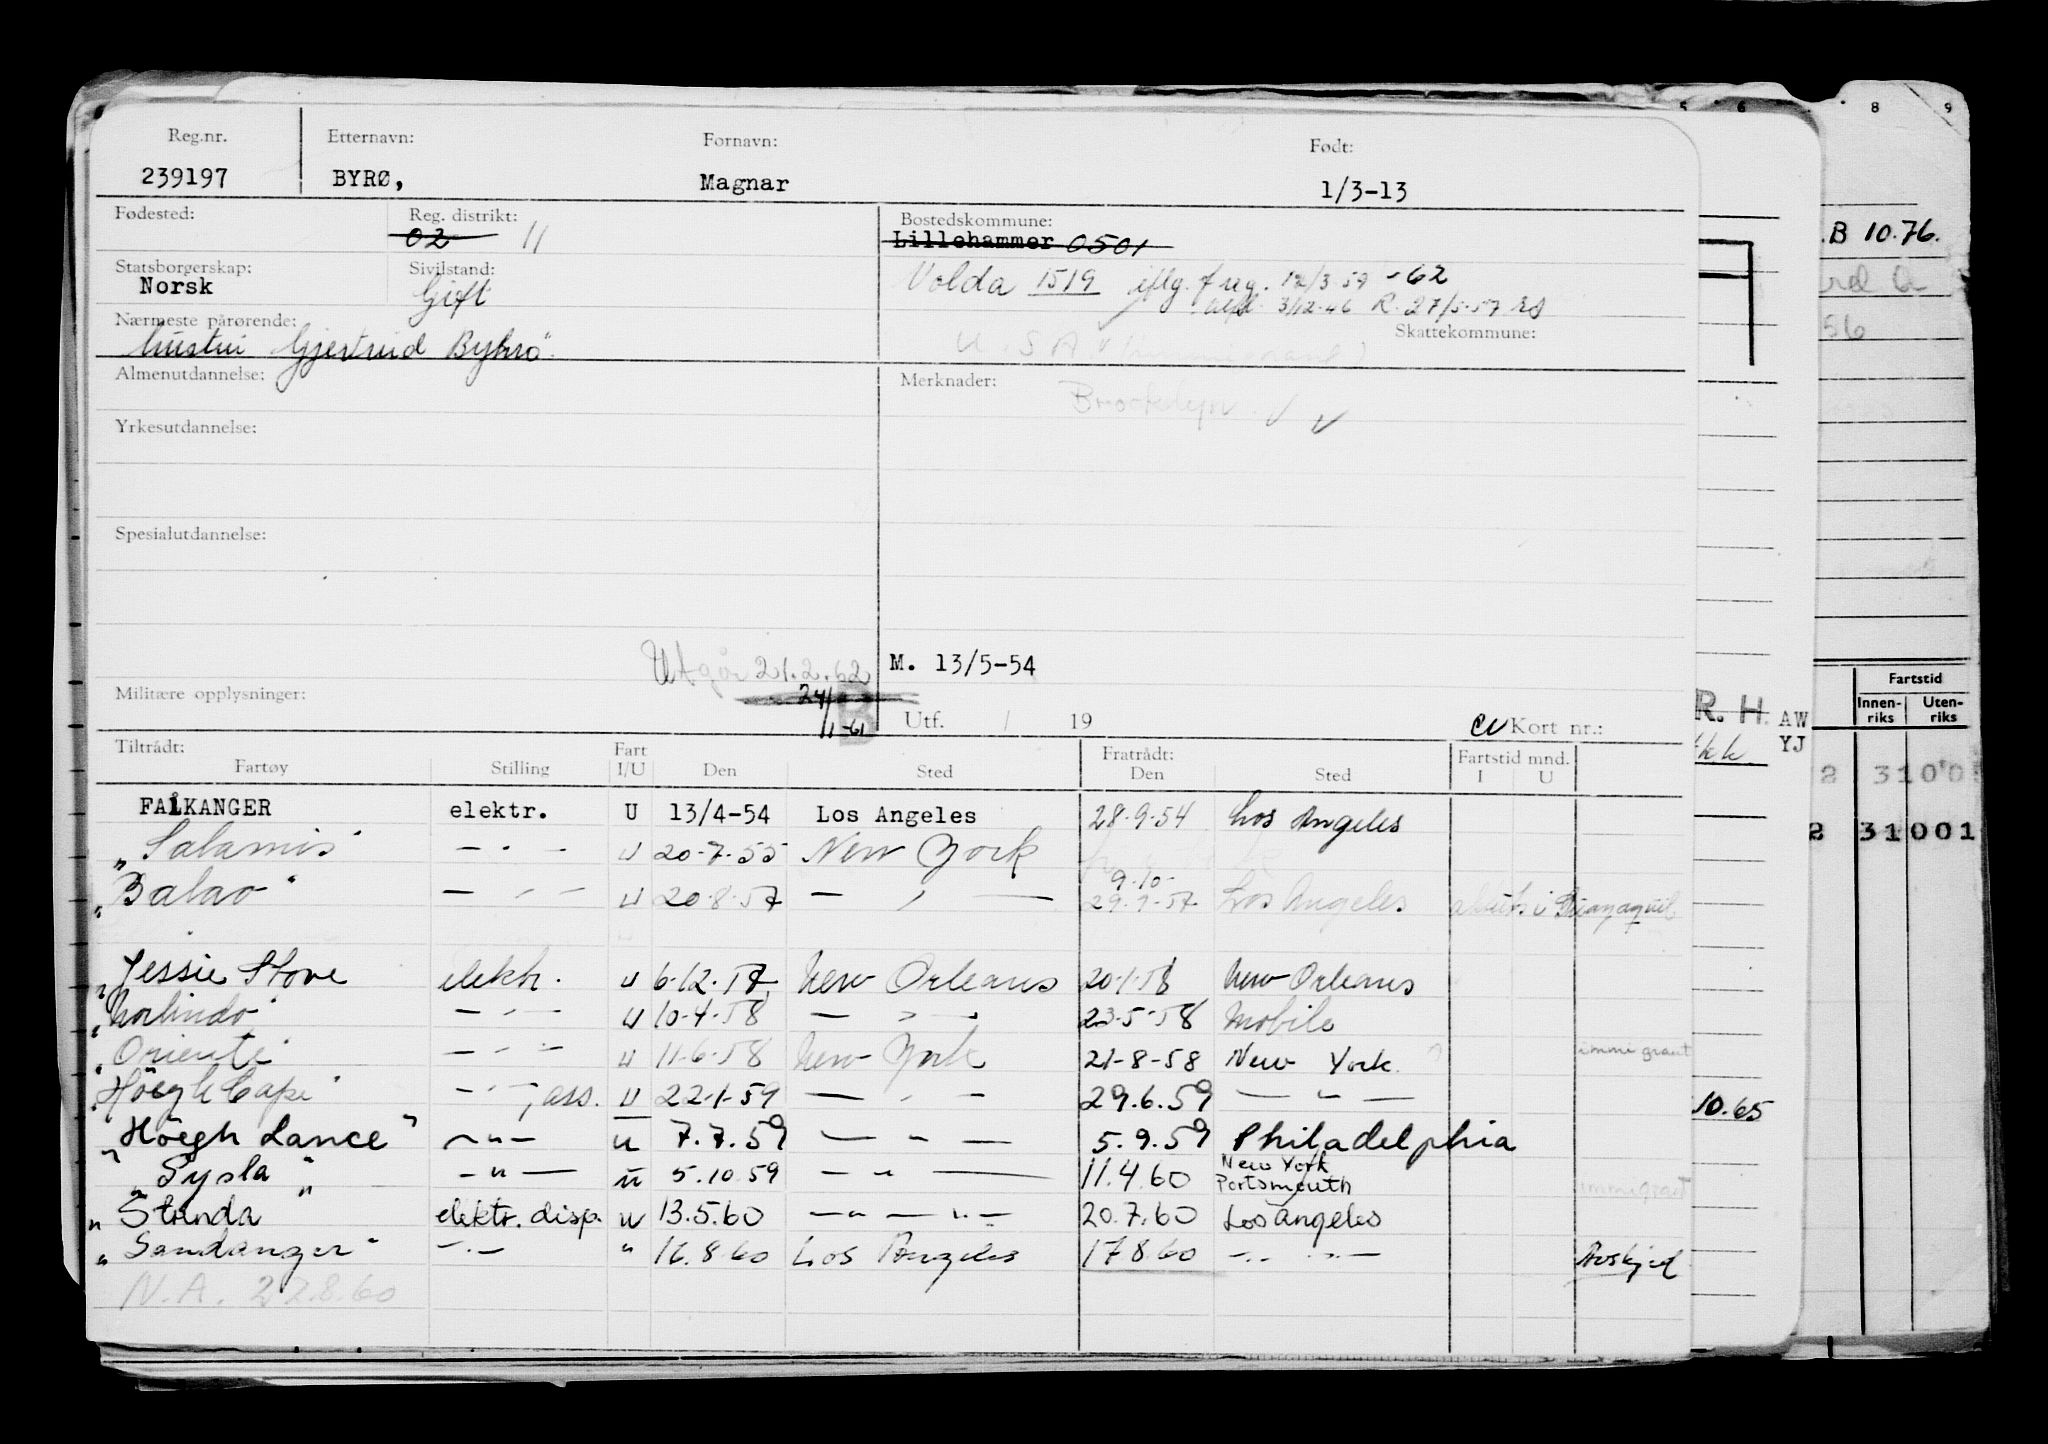 Reg.nr. Etternavn: Fornavn: Født:
239197 BYRØ, Magnar 1/3-13
Fødested: Reg. distrikt: Bostedskommune:
02 11 Lillehammer 0501
Statsborgerskap: Sivilstand: Volda 1519 iflg. freg. 12/3-59 -62
Norsk Gift 3/12-46 R. 27/5-57
Nærmeste pårørende: Skattekommune:
hustru Gjertrud Byhrø U.S.A.
Almenutdannelse: Merknader:
Brooklyn
Yrkesutdannelse:
Spesialutdannelse:
Utgår 21.2.62 M. 13/5-54
Militære opplysninger: 24/
11-61 B Utf. / 19 Kort nr.:
Tiltrådt: Fart Fratrådt: Fartstid mnd.
Fartøy Stilling I/U Den Sted Den Sted I U
FALKANGER elektr. U 13/4-54 Los Angeles 28-9-54 Los Angeles
"Salamis" — " — U 20-7-55 New York
"Balao" — " — U 20-8-57 — " — 9-10- 29-9-57 Los Angeles i Guayaquil
"Jessie Stove elektr. U 6-12-57 New Orleans 20-1-58 New Orleans
"Norlindo" — " — U 10-4-58 — " — 23-5-58 Mobile
"Oriente" — " — U 11-6-58 New York 21-8-58 New York immigrant
"Höegh Cape" — " —, ass. U 22-1-59 — " — 29.6.59 — " —
"Höegh Lance" — " — U 7.7.59 — " — 5.9.59 Philadelphia
"Sysla" — " — U 5.10.59 — " — 11.4.60 New York Portsmouth immigrant
"Stranda elektr. disp. U 13.5.60 — " — " — 20.7.60 Los Angeles
"Sandanger" — " — " 16.8.60 Los Angeles 17.8.60 — " — " — Avskjed
N.A. 22.8.60
5 6 8 9
.B 10.76.
56
R. H. AW
YJ
10.65
Fartstid
Innen-riks Uten-riks
2 3100
2 31001